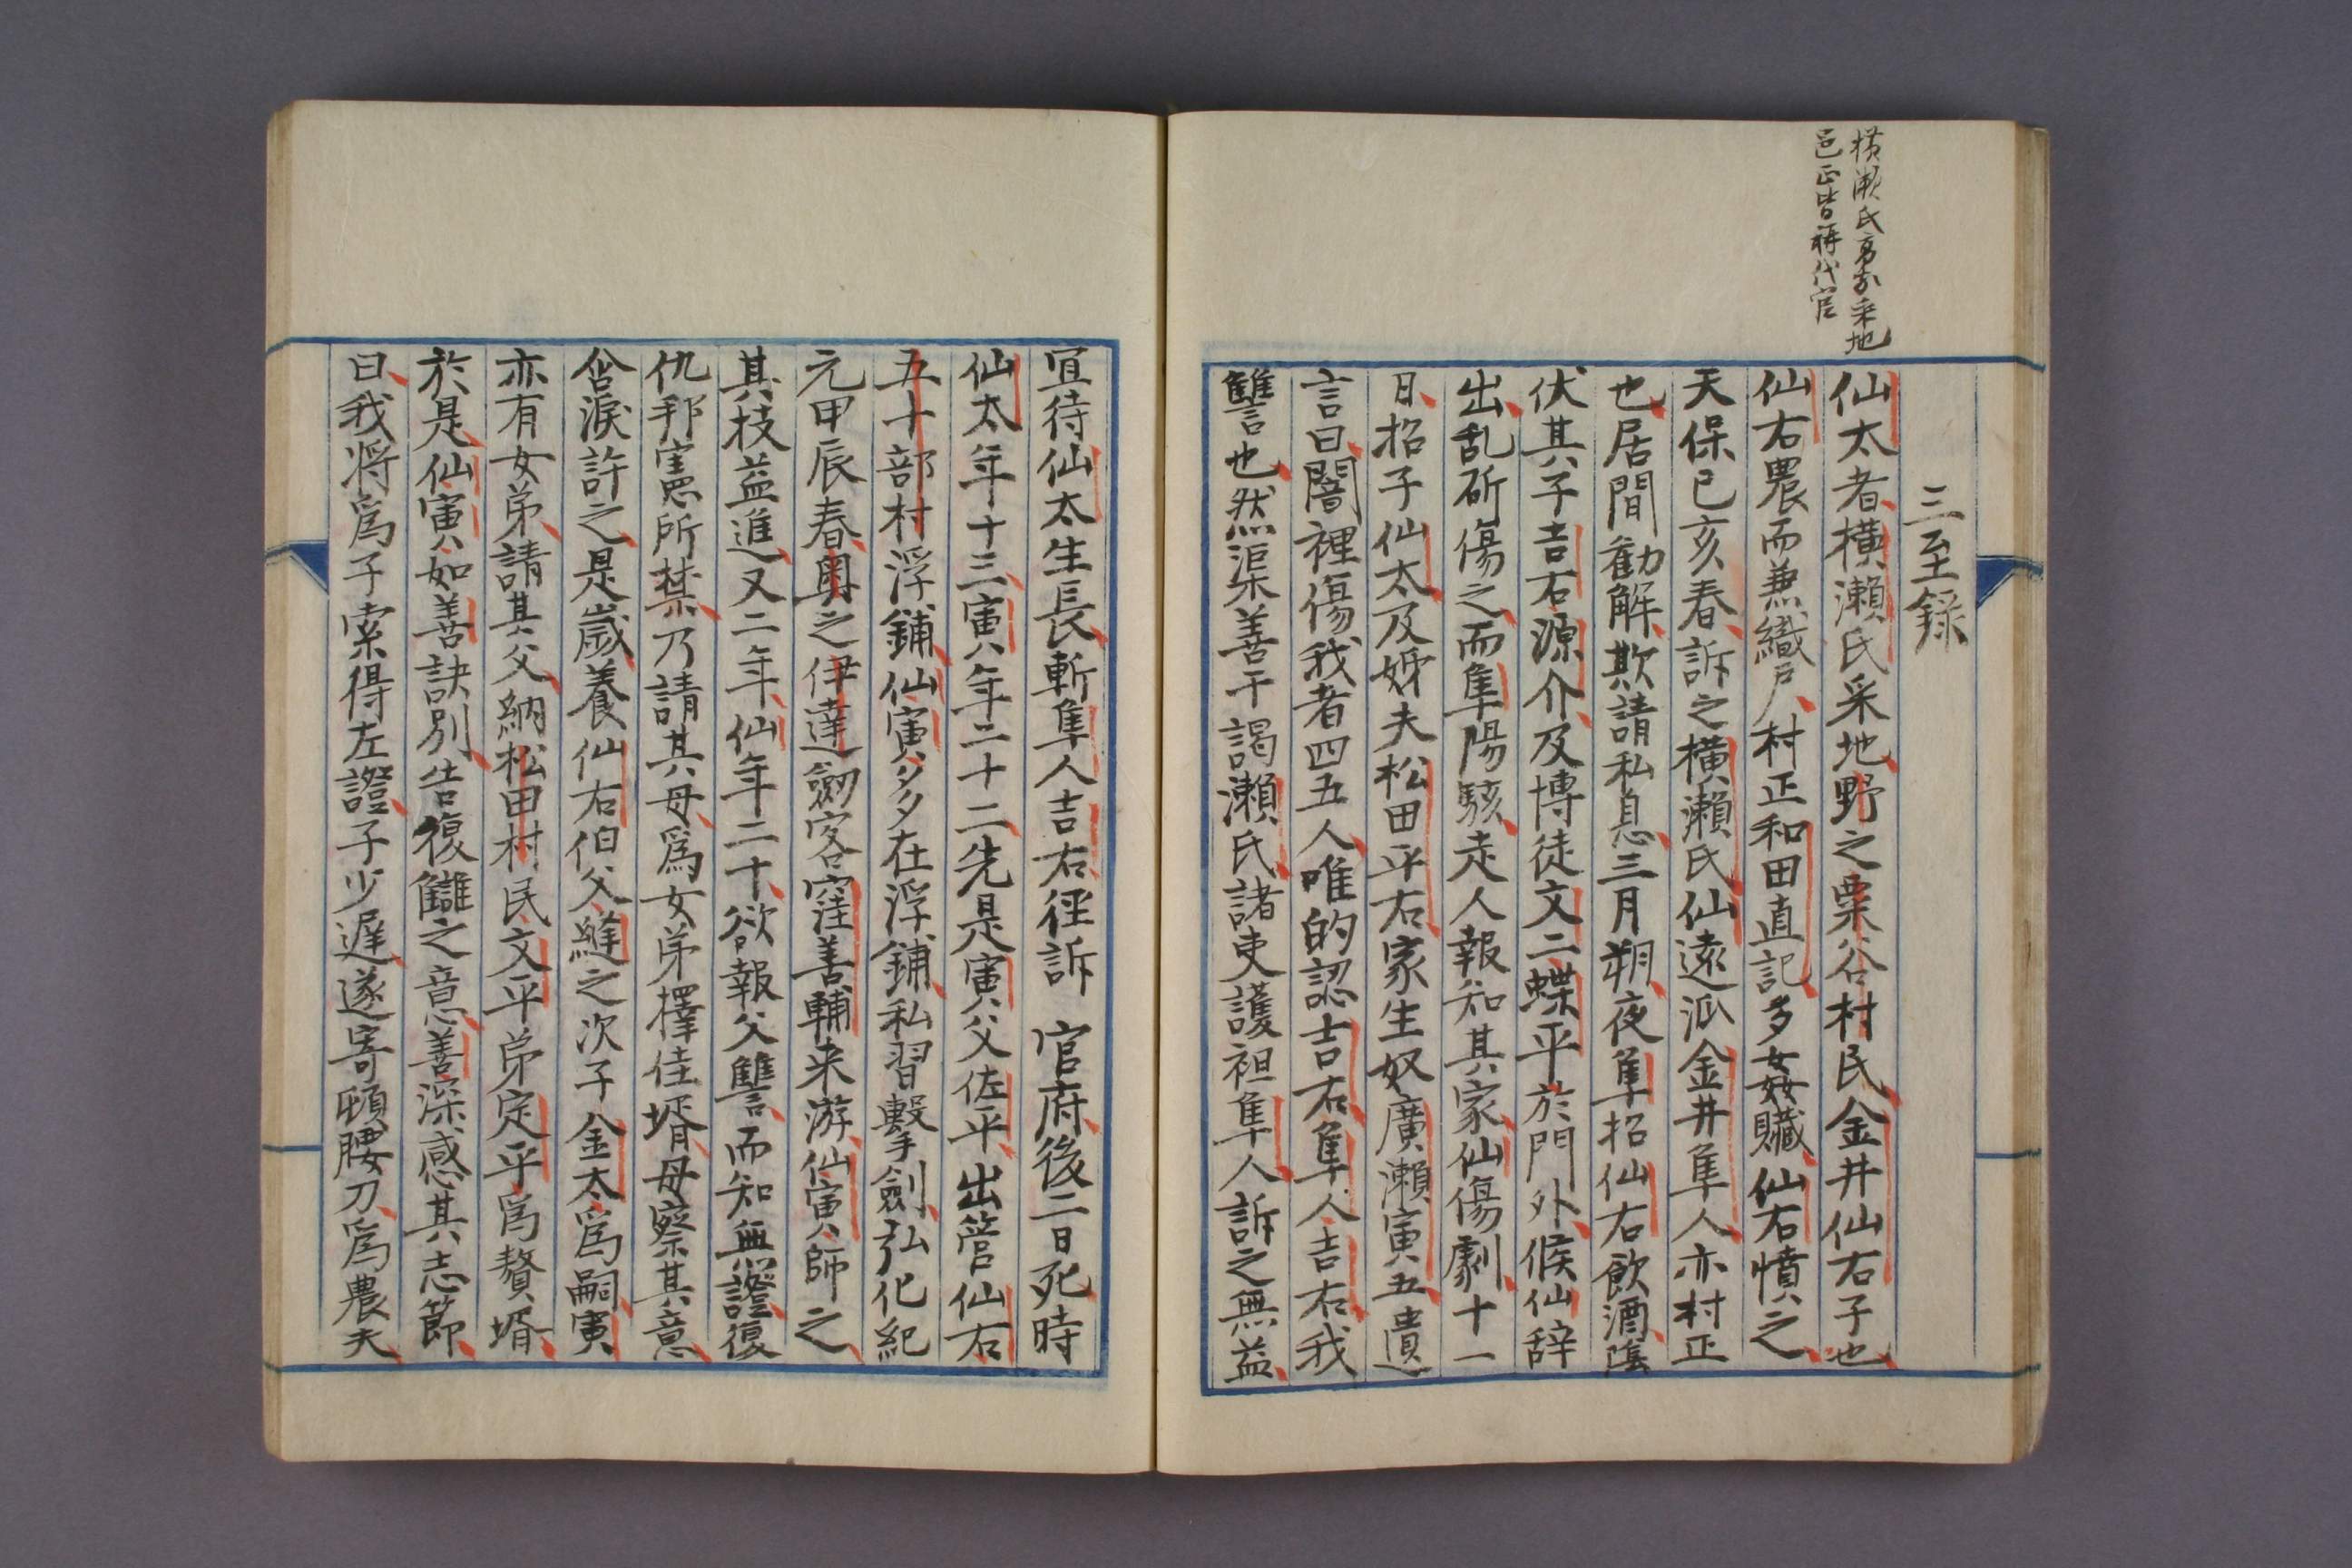 横瀬氏高家采地
邑正皆称代官
三至録
仙太者横瀬氏采地野之粟谷村民金井仙右子也
仙右農而兼織戸村正和田直記多姦贓仙右憤之
天保己亥春訴之横瀬氏仙遠派金井隼人亦村正
也居間勧解欺請私息三月朔夜隼招仙右飲酒陰
伏其子吉右源介及博徒文二蝶平於門外候仙辞
出乱斫傷之而隼陽駭走人報知其家仙傷劇十一
日招子仙太及姊夫松田平右家生奴廣瀬寅五遺
言曰闇裡傷我者四五人唯的認吉右隼人吉右我
讐也然渠善干謁瀬氏諸吏護袒隼人訴之無益
宜待仙太生長斬隼人吉右径訴 官府後二日死時
仙太年十三寅年二十二先是寅父佐平出管仙右
五十部村浮鋪仙寅多在浮鋪私習擊劍弘化紀
元甲辰春奥之伊達劒客窪善輔来游仙寅師之
其技益進又二年仙年二十欲報父讐而知無證復
仇邦憲所禁乃請其母爲女弟擇佳壻母察其意
含涙許之是歲養仙右伯父縫之次子金太爲嗣寅
亦有女弟請其父納松田村民文平弟定平爲贅壻
於是仙寅如善訣別告復讎之意善深感其志節
曰我将爲子索得左證子少遅遂寄頓腰刀爲農夫